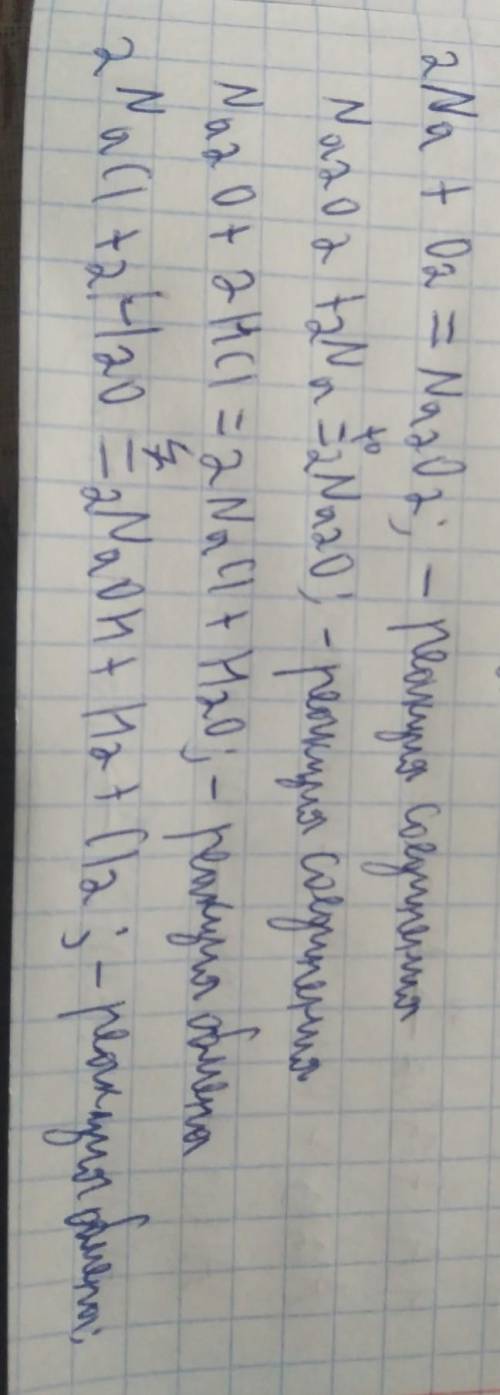 2Na + O2 = Na2O2; - реакция соединения
Na2O2 + 2Na =t° 2Na2O; - реакция соединения
Na2O + 2HCl = 2NaCl + H2O; - реакция обмена
2NaCl + 2H2O =↯ 2NaOH + H2 + Cl2; - реакция обмена;